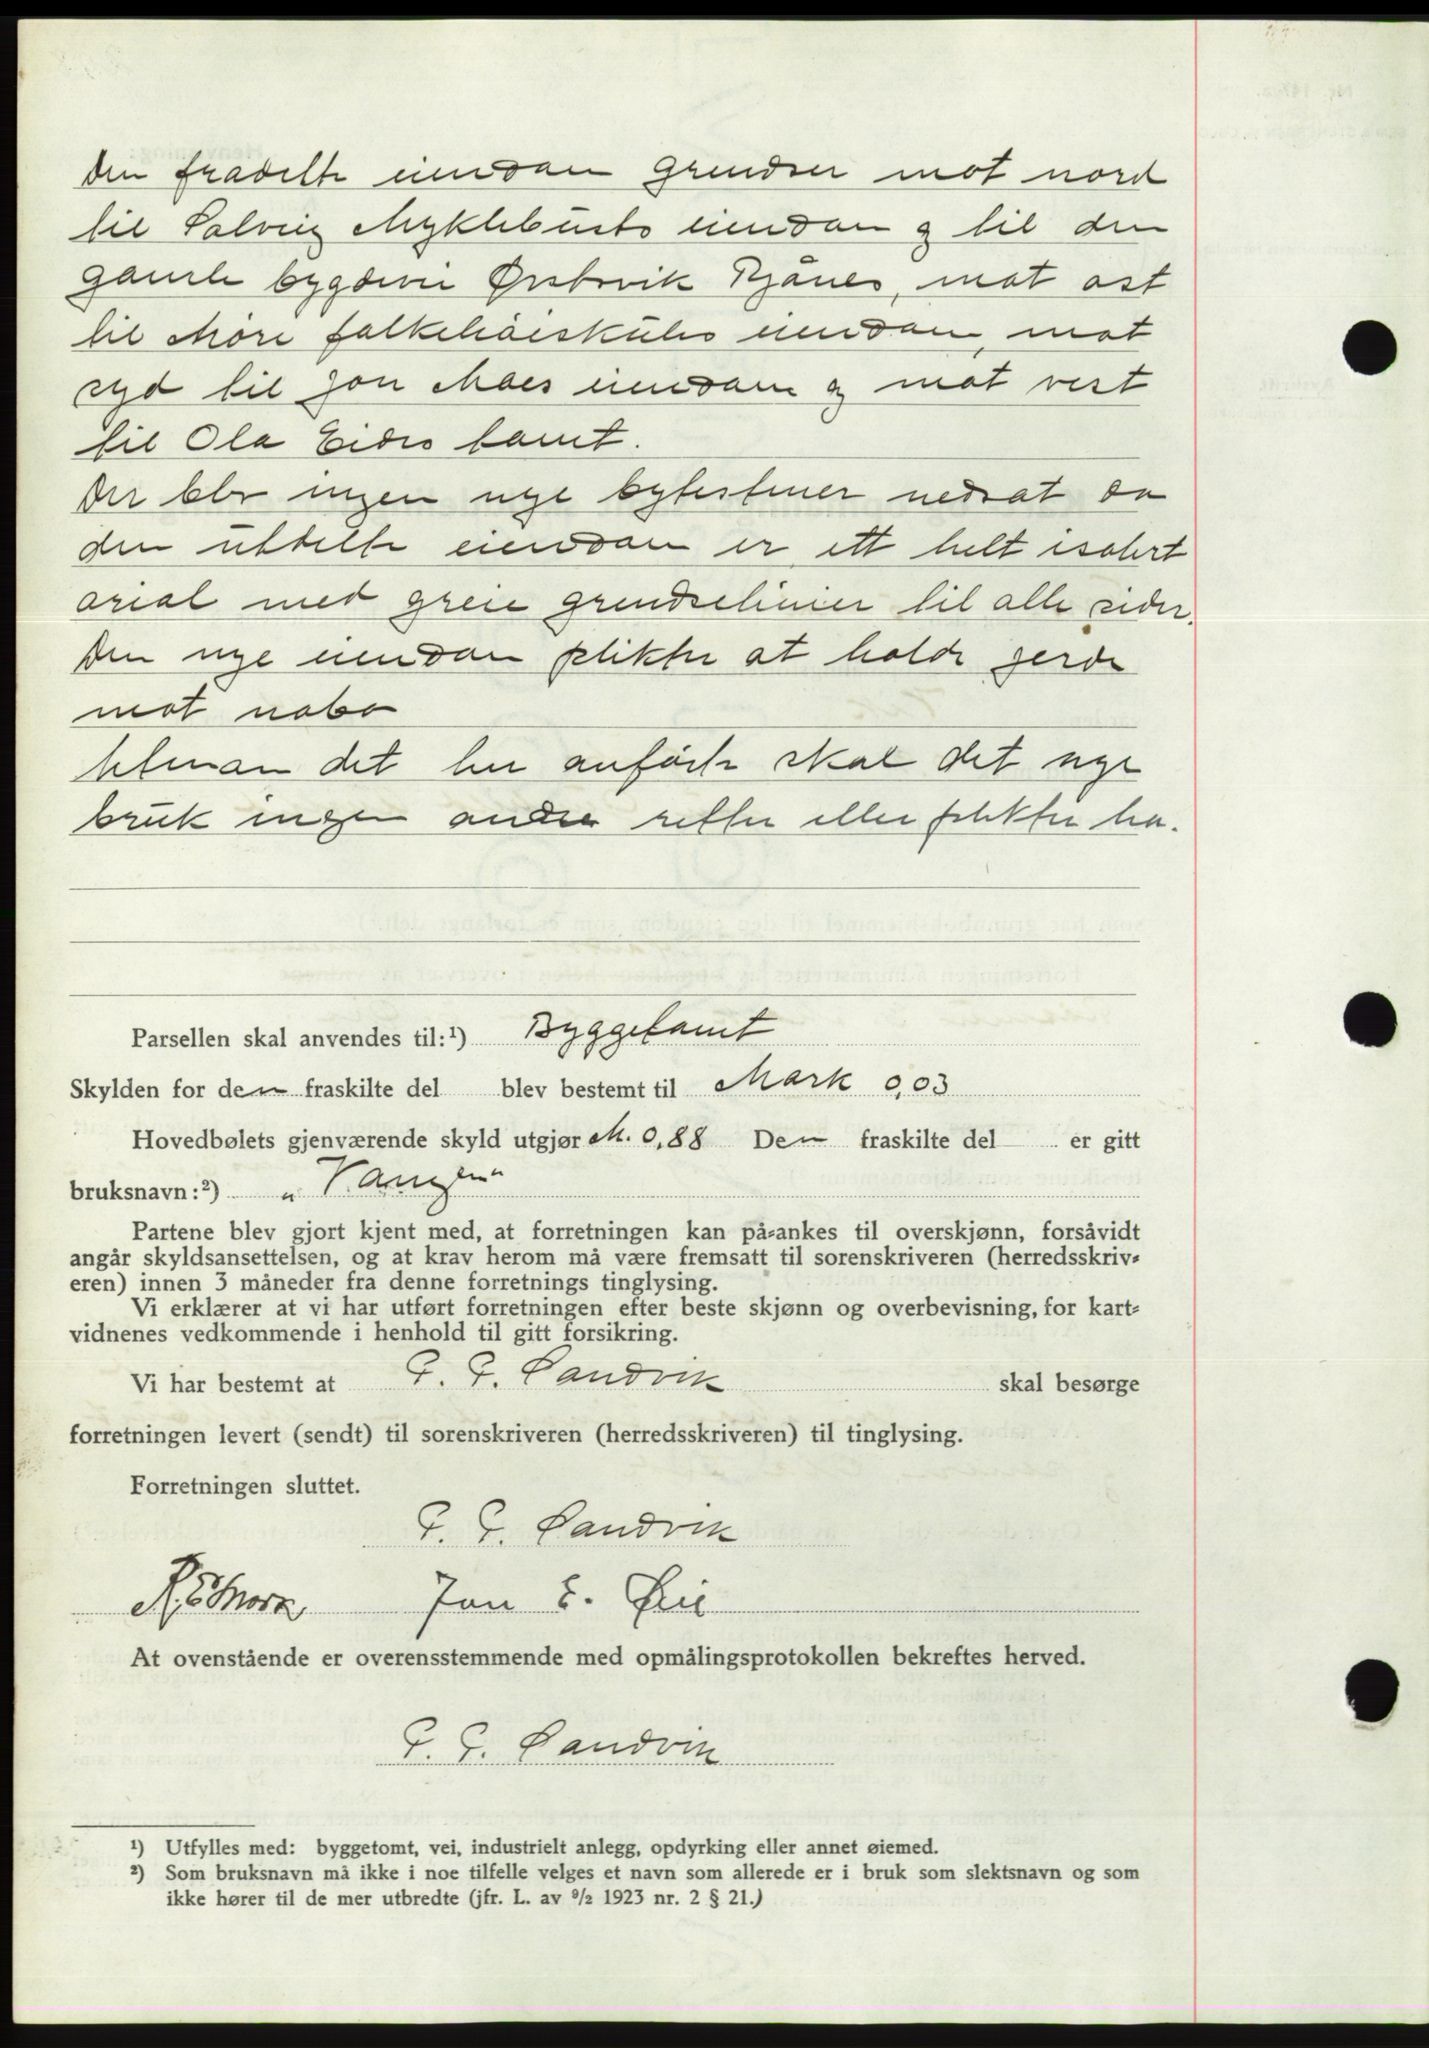 Den fradelte eiendom grendser mot nord
til Solveig Myklebusts eiendom og til den
gamle bygdevei Ørstavik Rjånes, mot ost
til Møre folkehøiskules eiendom, mot
syd til Jon Moes eiendom og mot vest
til Ola Eides tomt.
Der blev ingen nye bytestener nedsat da
den utdelte eiendom er ett helt isolert
arial med greie grendselinier til alle sider.
Den nye eiendom plikter at holde gerde
mot nabo
Utenom det her anførte skal det nye
bruk ingen andre retter eller plikter ha.
Parsellen skal anvendes til:¹) Byggetomt
Skylden for den fraskilte del blev bestemt til Mark 0,03
Hovedbølets gjenværende skyld utgjør M. 0,88 Den fraskilte del er gitt
bruksnavn:²) „Vangen"
Partene blev gjort kjent med, at forretningen kan på-ankes til overskjønn, forsåvidt
angår skyldsansettelsen, og at krav herom må være fremsatt til sorenskriveren (herredsskriv-
eren) innen 3 måneder fra denne forretnings tinglysing.
Vi erklærer at vi har utført forretningen efter beste skjønn og overbevisning, for kart-
vidnenes vedkommende i henhold til gitt forsikring.
Vi har bestemt at P. P. Sandvik skal besørge
forretningen levert (sendt) til sorenskriveren (herredsskriveren) til tinglysing.
Forretningen sluttet.
P. P. Sandvik
Jon E. Øie
At ovenstående er overensstemmende med opmålingsprotokollen bekreftes herved.
P. P. Sandvik
¹) Utfylles med: byggetomt, vei, industrielt anlegg, opdyrking eller annet øiemed.
²) Som bruksnavn må ikke i noe tilfelle velges et navn som allerede er i bruk som slektsnavn og som
ikke hører til de mer utbredte (jfr. L. av ⁹/₂ 1923 nr. 2 § 21.)